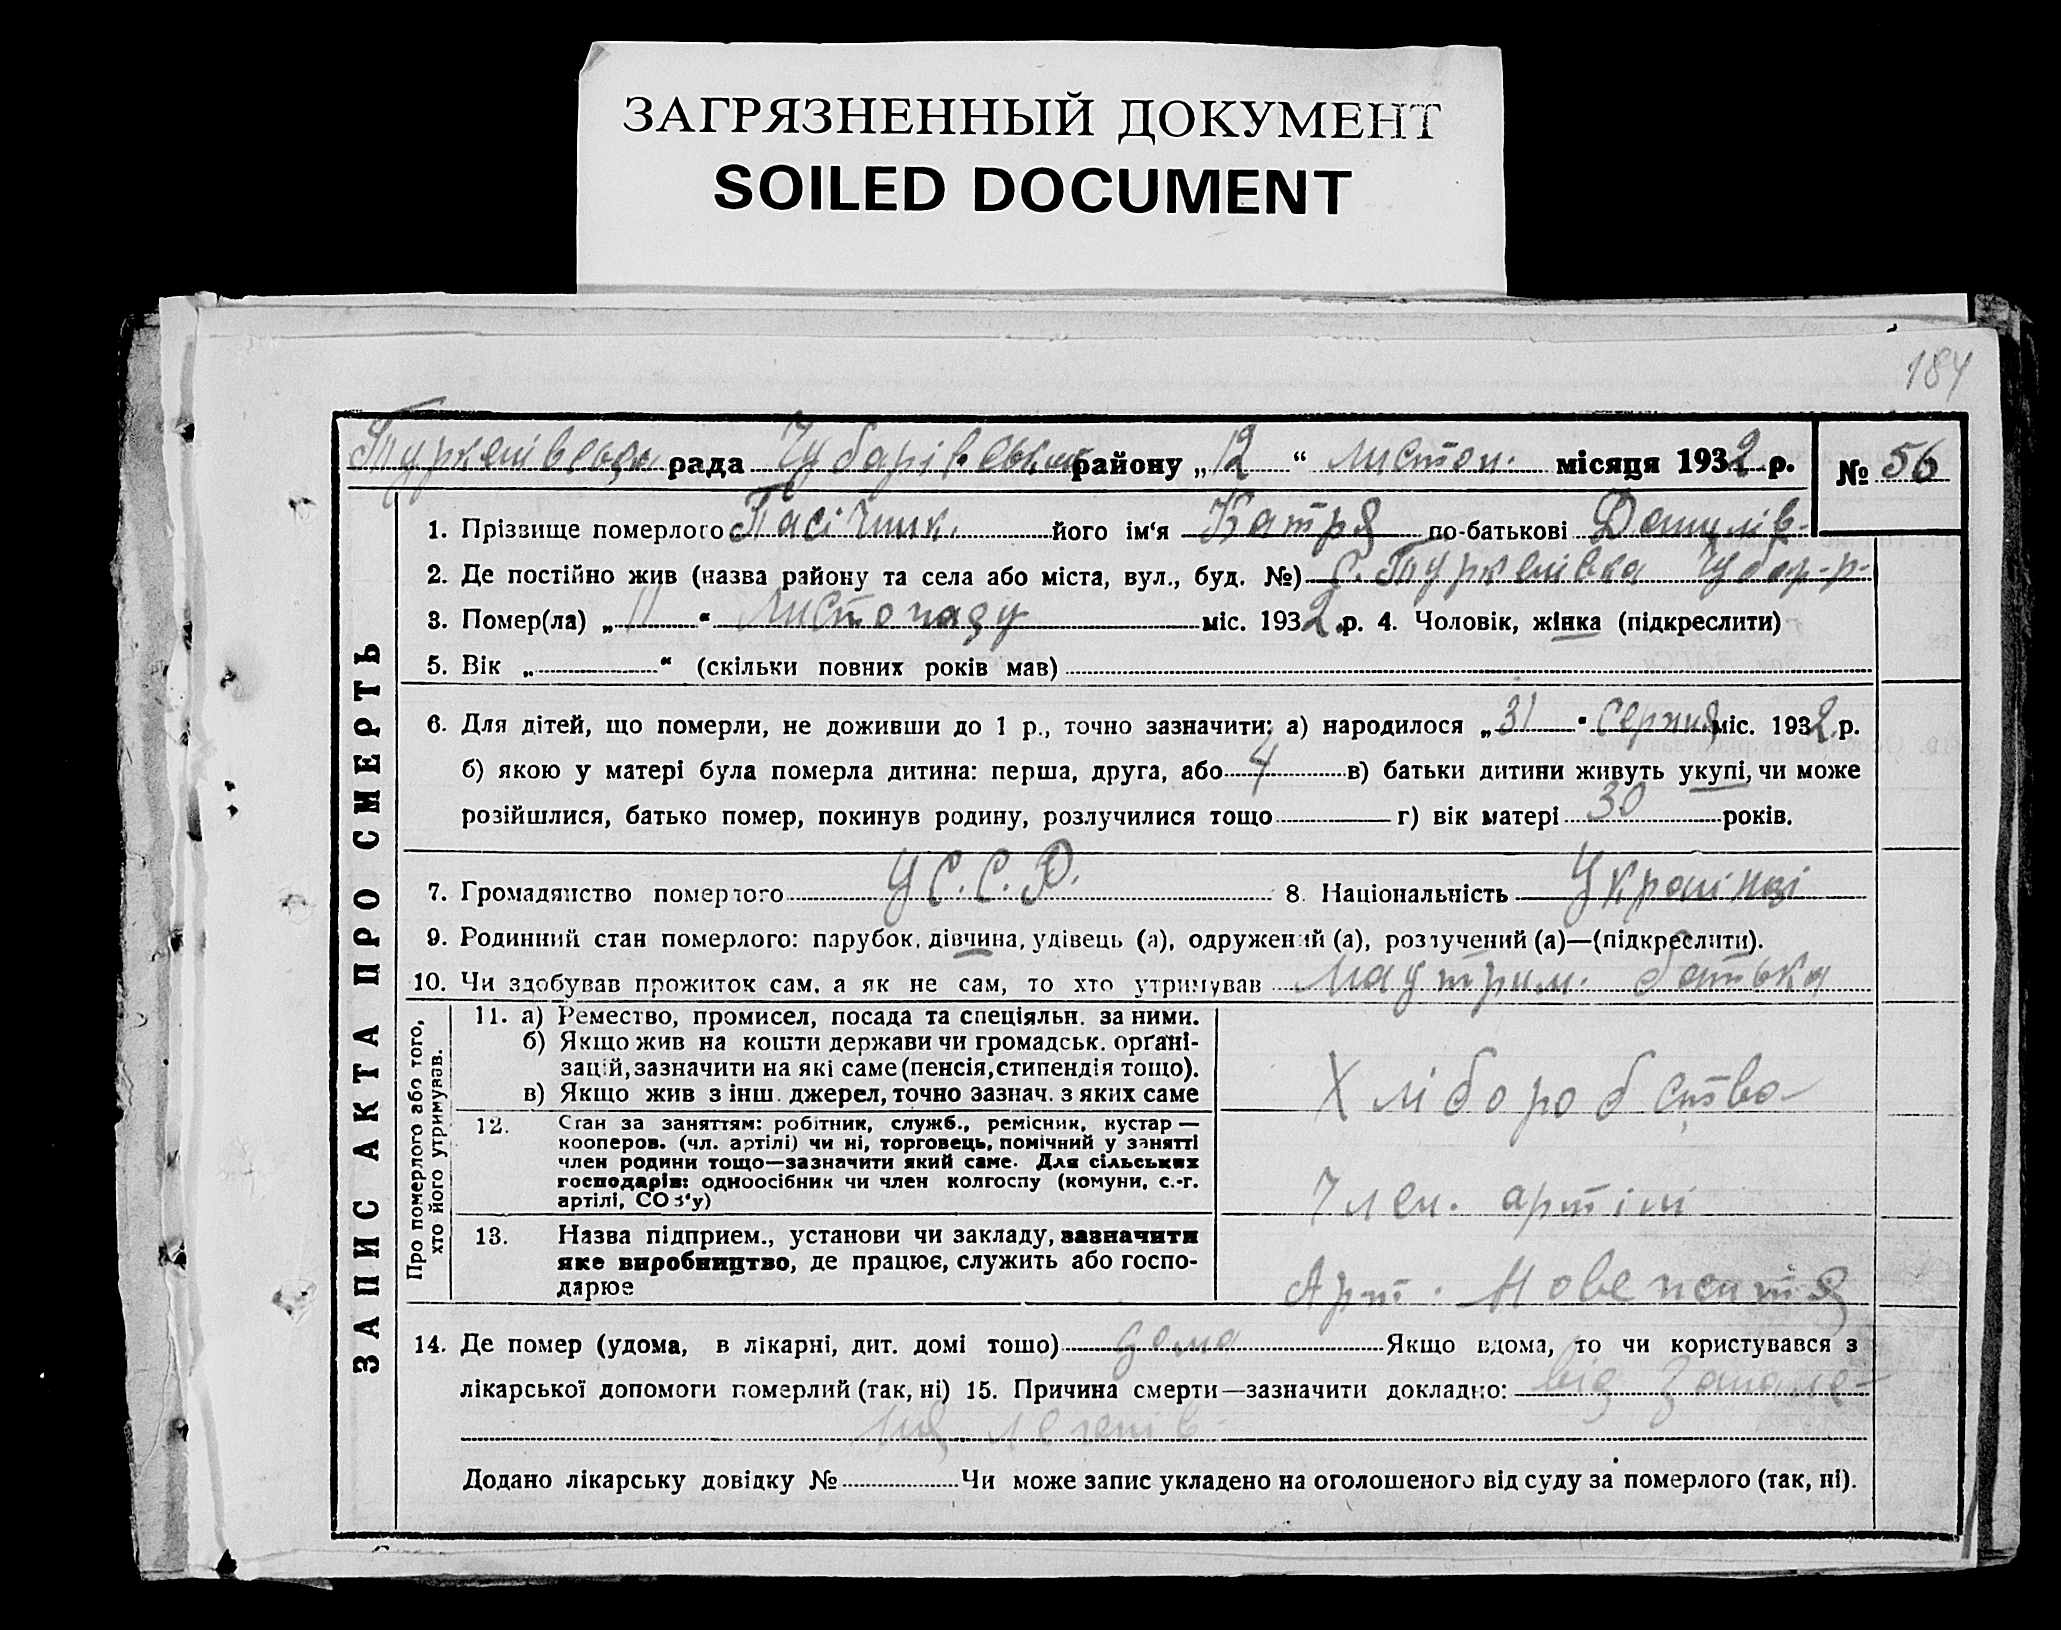 ЗАГРЯЗНЕННЫЙ ДОКУМЕНТ
SOILED DOCUMENT
184
Туркенівська рада Чубарівського району „12“ листоп. місяця 1932 р. № 56
1. Прізвище померлого Пасічник його ім'я Катря по-батькові Данилів-
2. Де постійно жив (назва району та села або міста, вул., буд. №) с. Туркенівка Чубар-р-
3. Помер(ла) „11“ Листопаду міс. 1932 р. 4. Чоловік, жінка (підкреслити)
5. Вік „ “ (скільки повних років мав)
6. Для дітей, що померли, не доживши до 1 р., точно зазначити: а) народилося „31“ Серпня міс. 1932 р.
б) якою у матері була померла дитина: перша, друга, або 4 в) батьки дитини живуть укупі, чи може
розійшлися, батько помер, покинув родину, розлучилися тощо г) вік матері 30 років.
7. Громадянство померлого У.С.С.Р. 8. Національність Українці
9. Родинний стан померлого: парубок, дівчина, удівець (а), одружений (а), розлучений (а)—(підкреслити).
10. Чи здобував прожиток сам, а як не сам, то хто утримував На утрим. батька
ЗАПИС АКТА ПРО СМЕРТЬ
Про померлого або того,
хто його утримував.
11. а) Ремество, промисел, посада та спеціяльн. за ними.
б) Якщо жив на кошти держави чи громадськ. орґані-
зацій, зазначити на які саме (пенсія, стипендія тощо).
в) Якщо жив з інш. джерел, точно зазнач. з яких саме
Хліборобство
12. Стан за заняттям: робітник, служб., ремісник, кустар —
кооперов. (чл. артілі) чи ні, торговець, помічний у занятті
член родини тощо—зазначити який саме. Для сільських
господарів: одноосібник чи член колгоспу (комуни, с.-г.
артілі, СОЗ'у)
Член. артілі
13. Назва підприєм., установи чи закладу, зазначити
яке виробництво, де працює, служить або госпо-
дарює
Арт.
14. Де помер (удома, в лікарні, дит. домі тощо) дома Якщо вдома, то чи користувався з
лікарської допомоги померлий (так, ні) 15. Причина смерти—зазначити докладно: від запале-
ння легенів
Додано лікарську довідку № Чи може запис укладено на оголошеного від суду за померлого (так, ні).